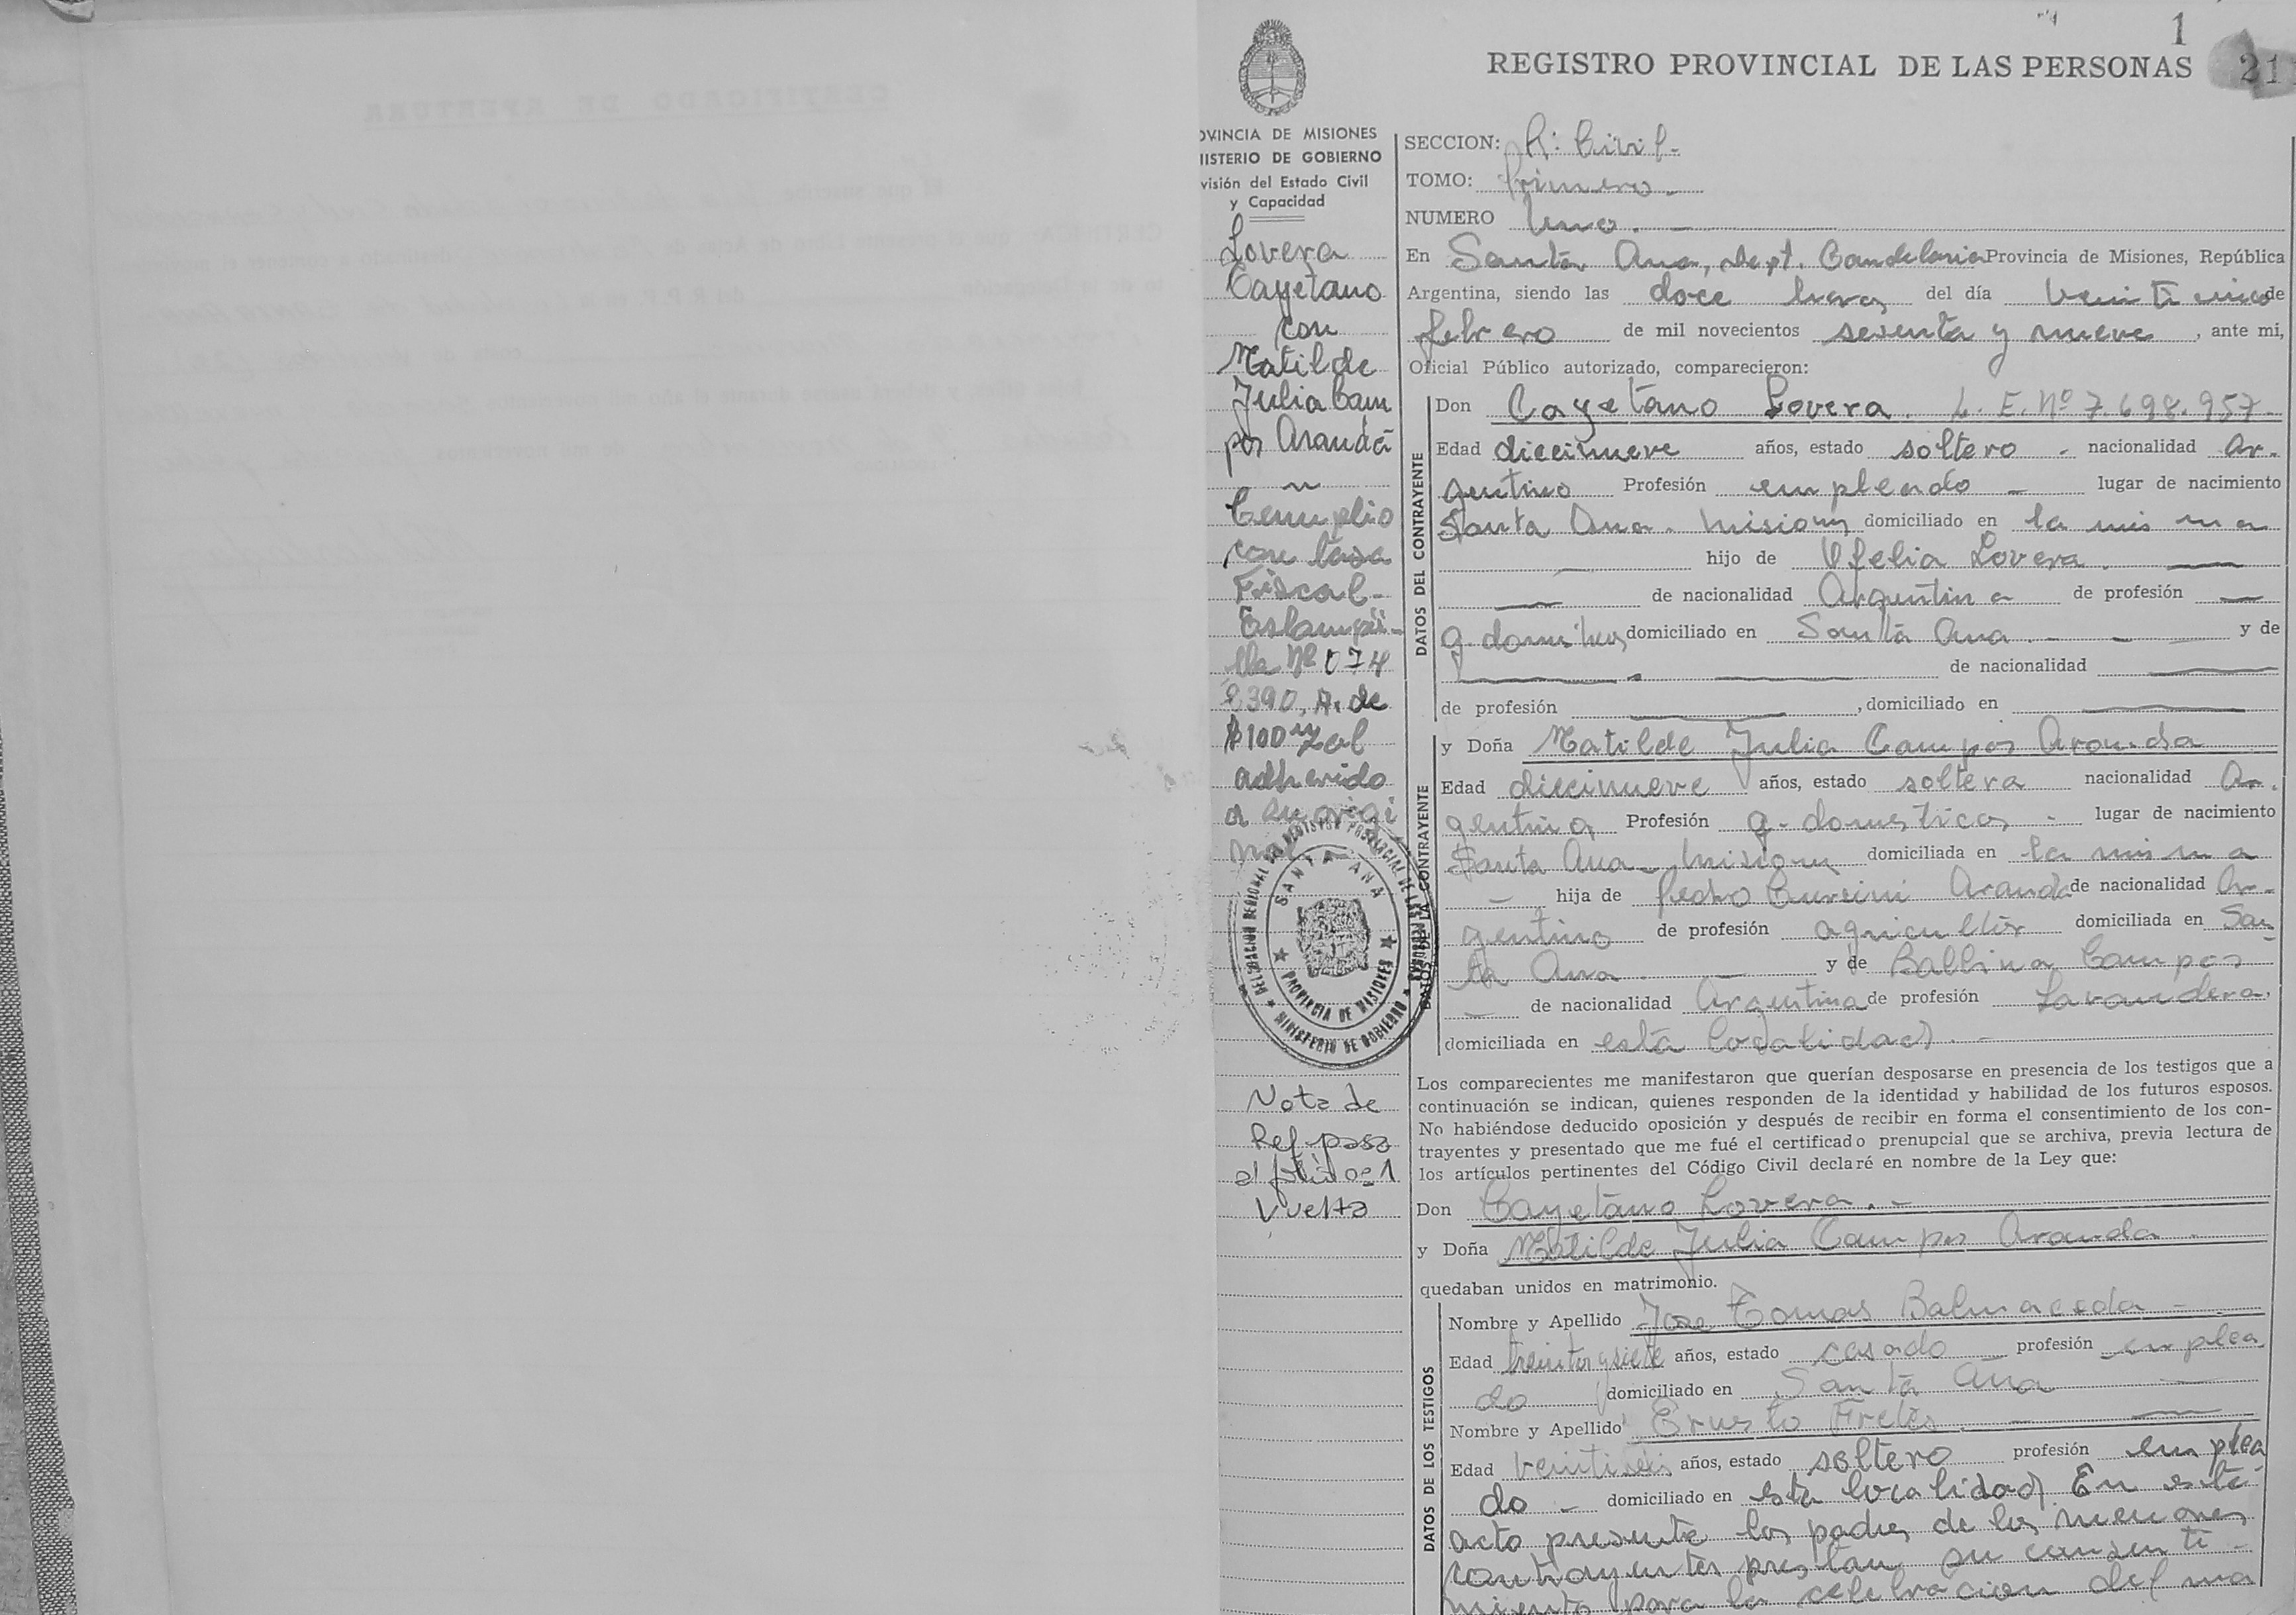 1
REGISTRO PROVINCIAL DE LAS PERSONAS
21
OVINCIA DE MISIONES
NISTERIO DE GOBIERNO
visión del Estado Civil
y Capacidad
Lovera
Cayetano
con
Matilde
Julia Cam
pos Aranda
Cumplio
con tasa
Fiscal -
Estampi-
lla Nº 074
8390, A. de
$ 100 m/l
adherido
a su origi
nal
DELEGACION REGIONAL DEL REGISTRO PROVINCIAL DE LAS PERSONAS
SANTA ANA
PROVINCIA DE MISIONES
MINISTERIO DE GOBIERNO
Nota de
Ref pasa
al folio 1
Vuelta
SECCION: R. Civil -
TOMO: Primero -
NUMERO Uno . -
En Santa Ana, dept. Candelaria Provincia de Misiones, República
Argentina, siendo las doce horas del día de
febrero de mil novecientos sesenta y nueve , ante mi,
Oficial Público autorizado, comparecieron:
DATOS DEL CONTRAYENTE
Don Cayetano Lovera. L. E. Nº 7.698.957-
Edad diecinueve años, estado soltero - nacionalidad Ar-
gentino Profesión empleado - lugar de nacimiento
Santa Ana - Misiones domiciliado en la misma
— hijo de Ofelia Lovera . —
— de nacionalidad Argentina de profesión —
q. domesticos domiciliado en Santa Ana . - - y de
de nacionalidad
de profesión , domiciliado en
DATOS DE LA CONTRAYENTE
y Doña Matilde Julia Campos Aranda
Edad diecinueve años, estado soltera nacionalidad Ar-
gentina Profesión q. domesticos - lugar de nacimiento
Santa Ana - Misiones domiciliada en la misma
- hija de Pedro Aranda de nacionalidad Ar-
gentino de profesión agricultor domiciliada en San
ta Ana . - y de Balbina Campos
- de nacionalidad Argentina de profesión Lavandera.
domiciliada en esta localidad . -
Los comparecientes me manifestaron que querían desposarse en presencia de los testigos que a
continuación se indican, quienes responden de la identidad y habilidad de los futuros esposos.
No habiéndose deducido oposición y después de recibir en forma el consentimiento de los con-
trayentes y presentado que me fué el certificado prenupcial que se archiva, previa lectura de
los artículos pertinentes del Código Civil declaré en nombre de la Ley que:
Don Cayetano Lovera . -
y Doña Matilde Julia Campos Aranda
quedaban unidos en matrimonio.
DATOS DE LOS TESTIGOS
Nombre y Apellido Jose Tomas Balmaceda -
Edad treinta y siete años, estado casado profesión emplea
do domiciliado en Santa Ana -
Nombre y Apellido Ernesto Fretes . -
Edad veintiseis años, estado soltero profesión emplea
do - domiciliado en esta localidad. En este
acto presente los padres de los menores
contrayentes prestan su consenti-
miento para la celebracion del ma